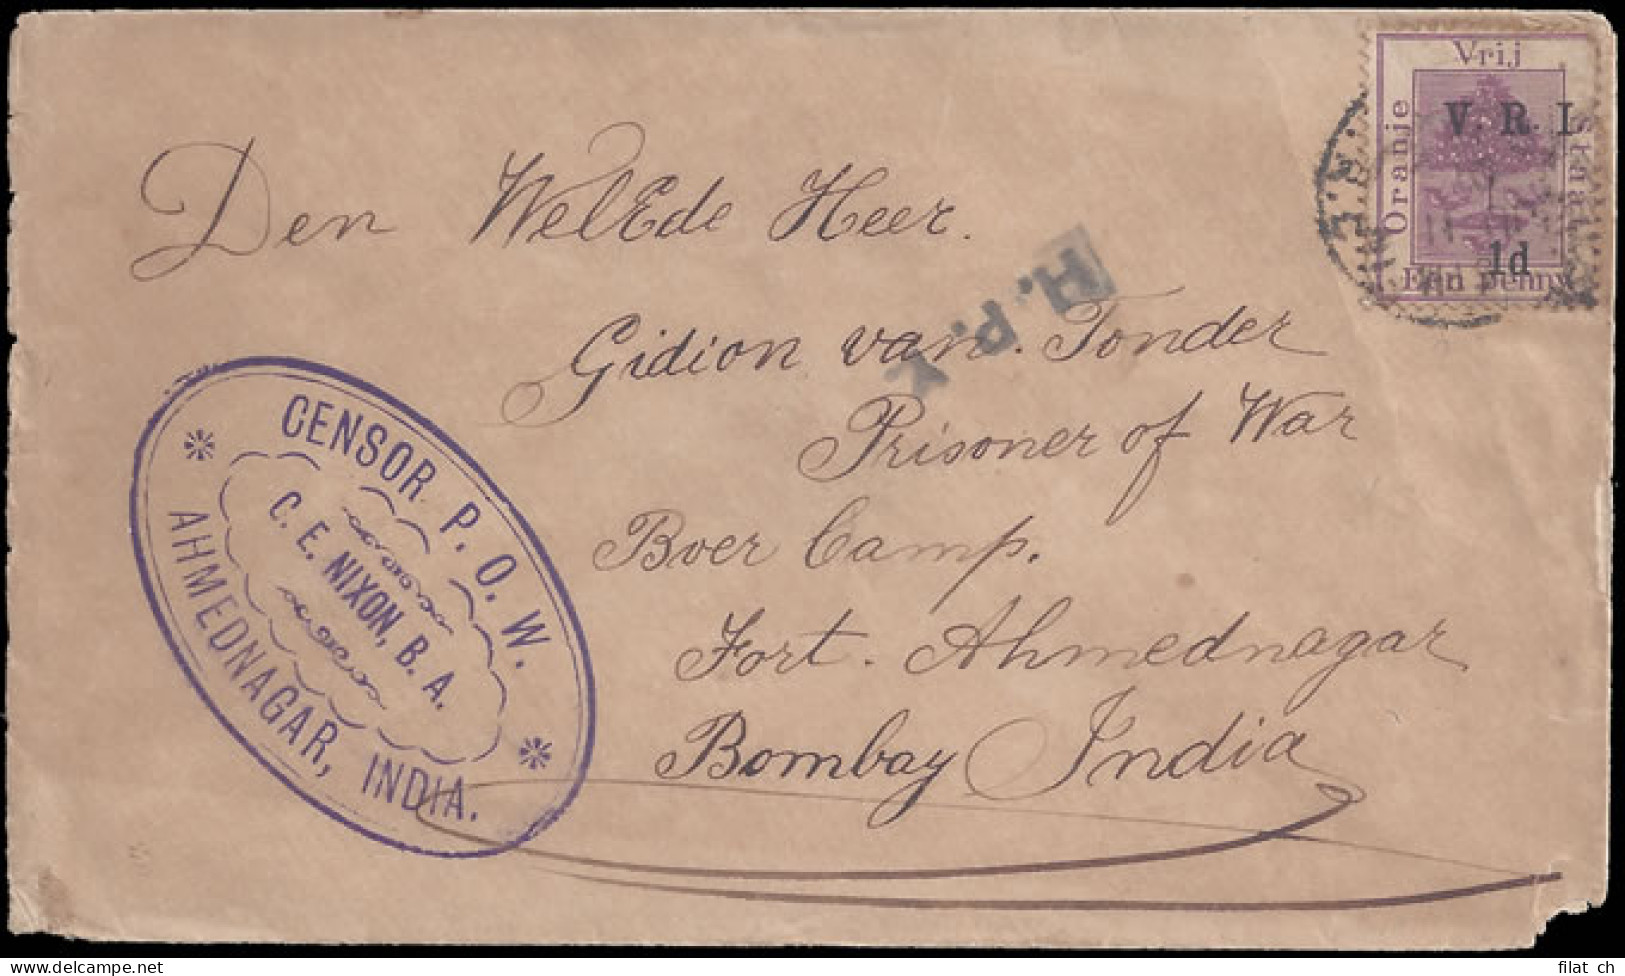 Vrij
Oranje
staat
V. R. I.
1d
Een penny
Den WelEde Heer.
Gidion van Tonder
Prisoner of War
Boer Camp.
Fort. Ahmednagar
Bombay India
H. P.
CENSOR P. O. W.
C. E. NIXON, B. A.
AHMEDNAGAR, INDIA.
filat ch